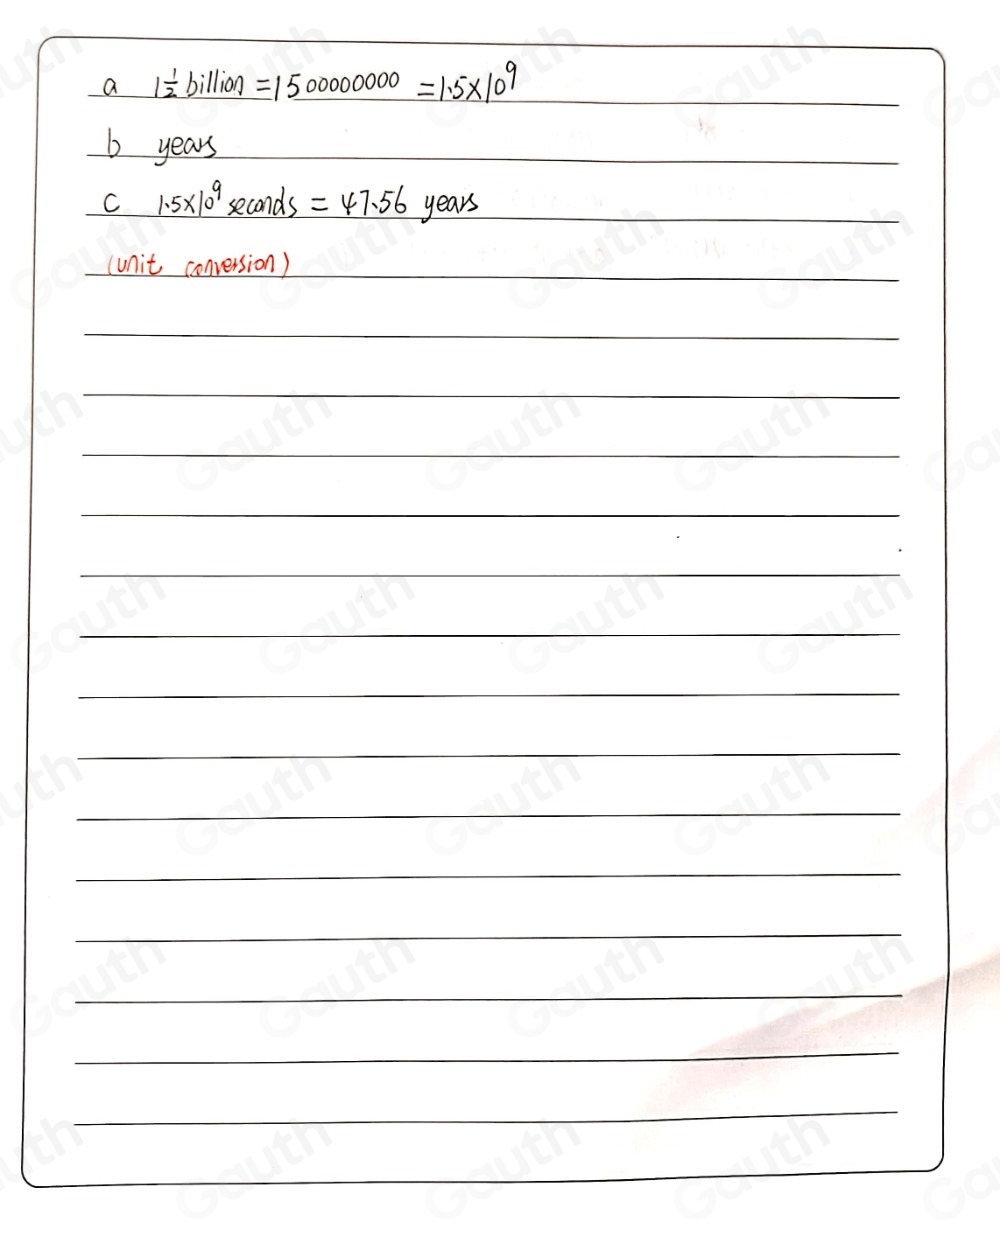 a 1½ billion = 1500000000 = 1.5×10⁹
b years
c 1.5×10⁹ seconds = 47.56 years
(unit conversion)